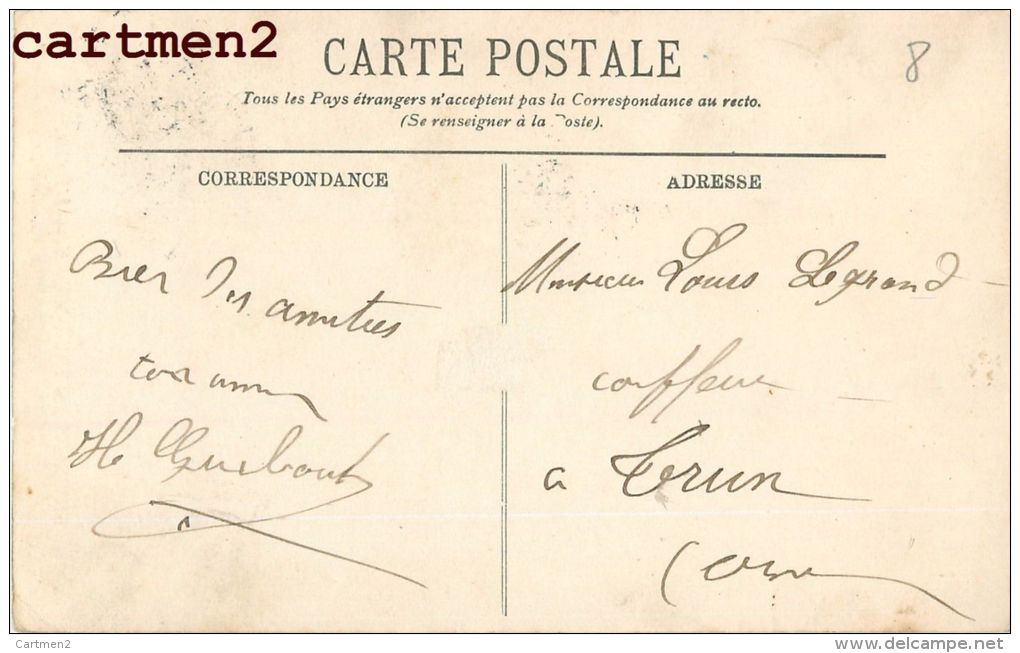 cartmen2
CARTE POSTALE
8
Tous les Pays étrangers n'acceptent pas la Correspondance au recto.
(Se renseigner à la Poste).
CORRESPONDANCE
Bien des amitiés
ton ami
H Guibout
ADRESSE
Monsieur Louis Legrand
coiffeur
a Trun
Orne
Cartmen2
www.delcampe.net